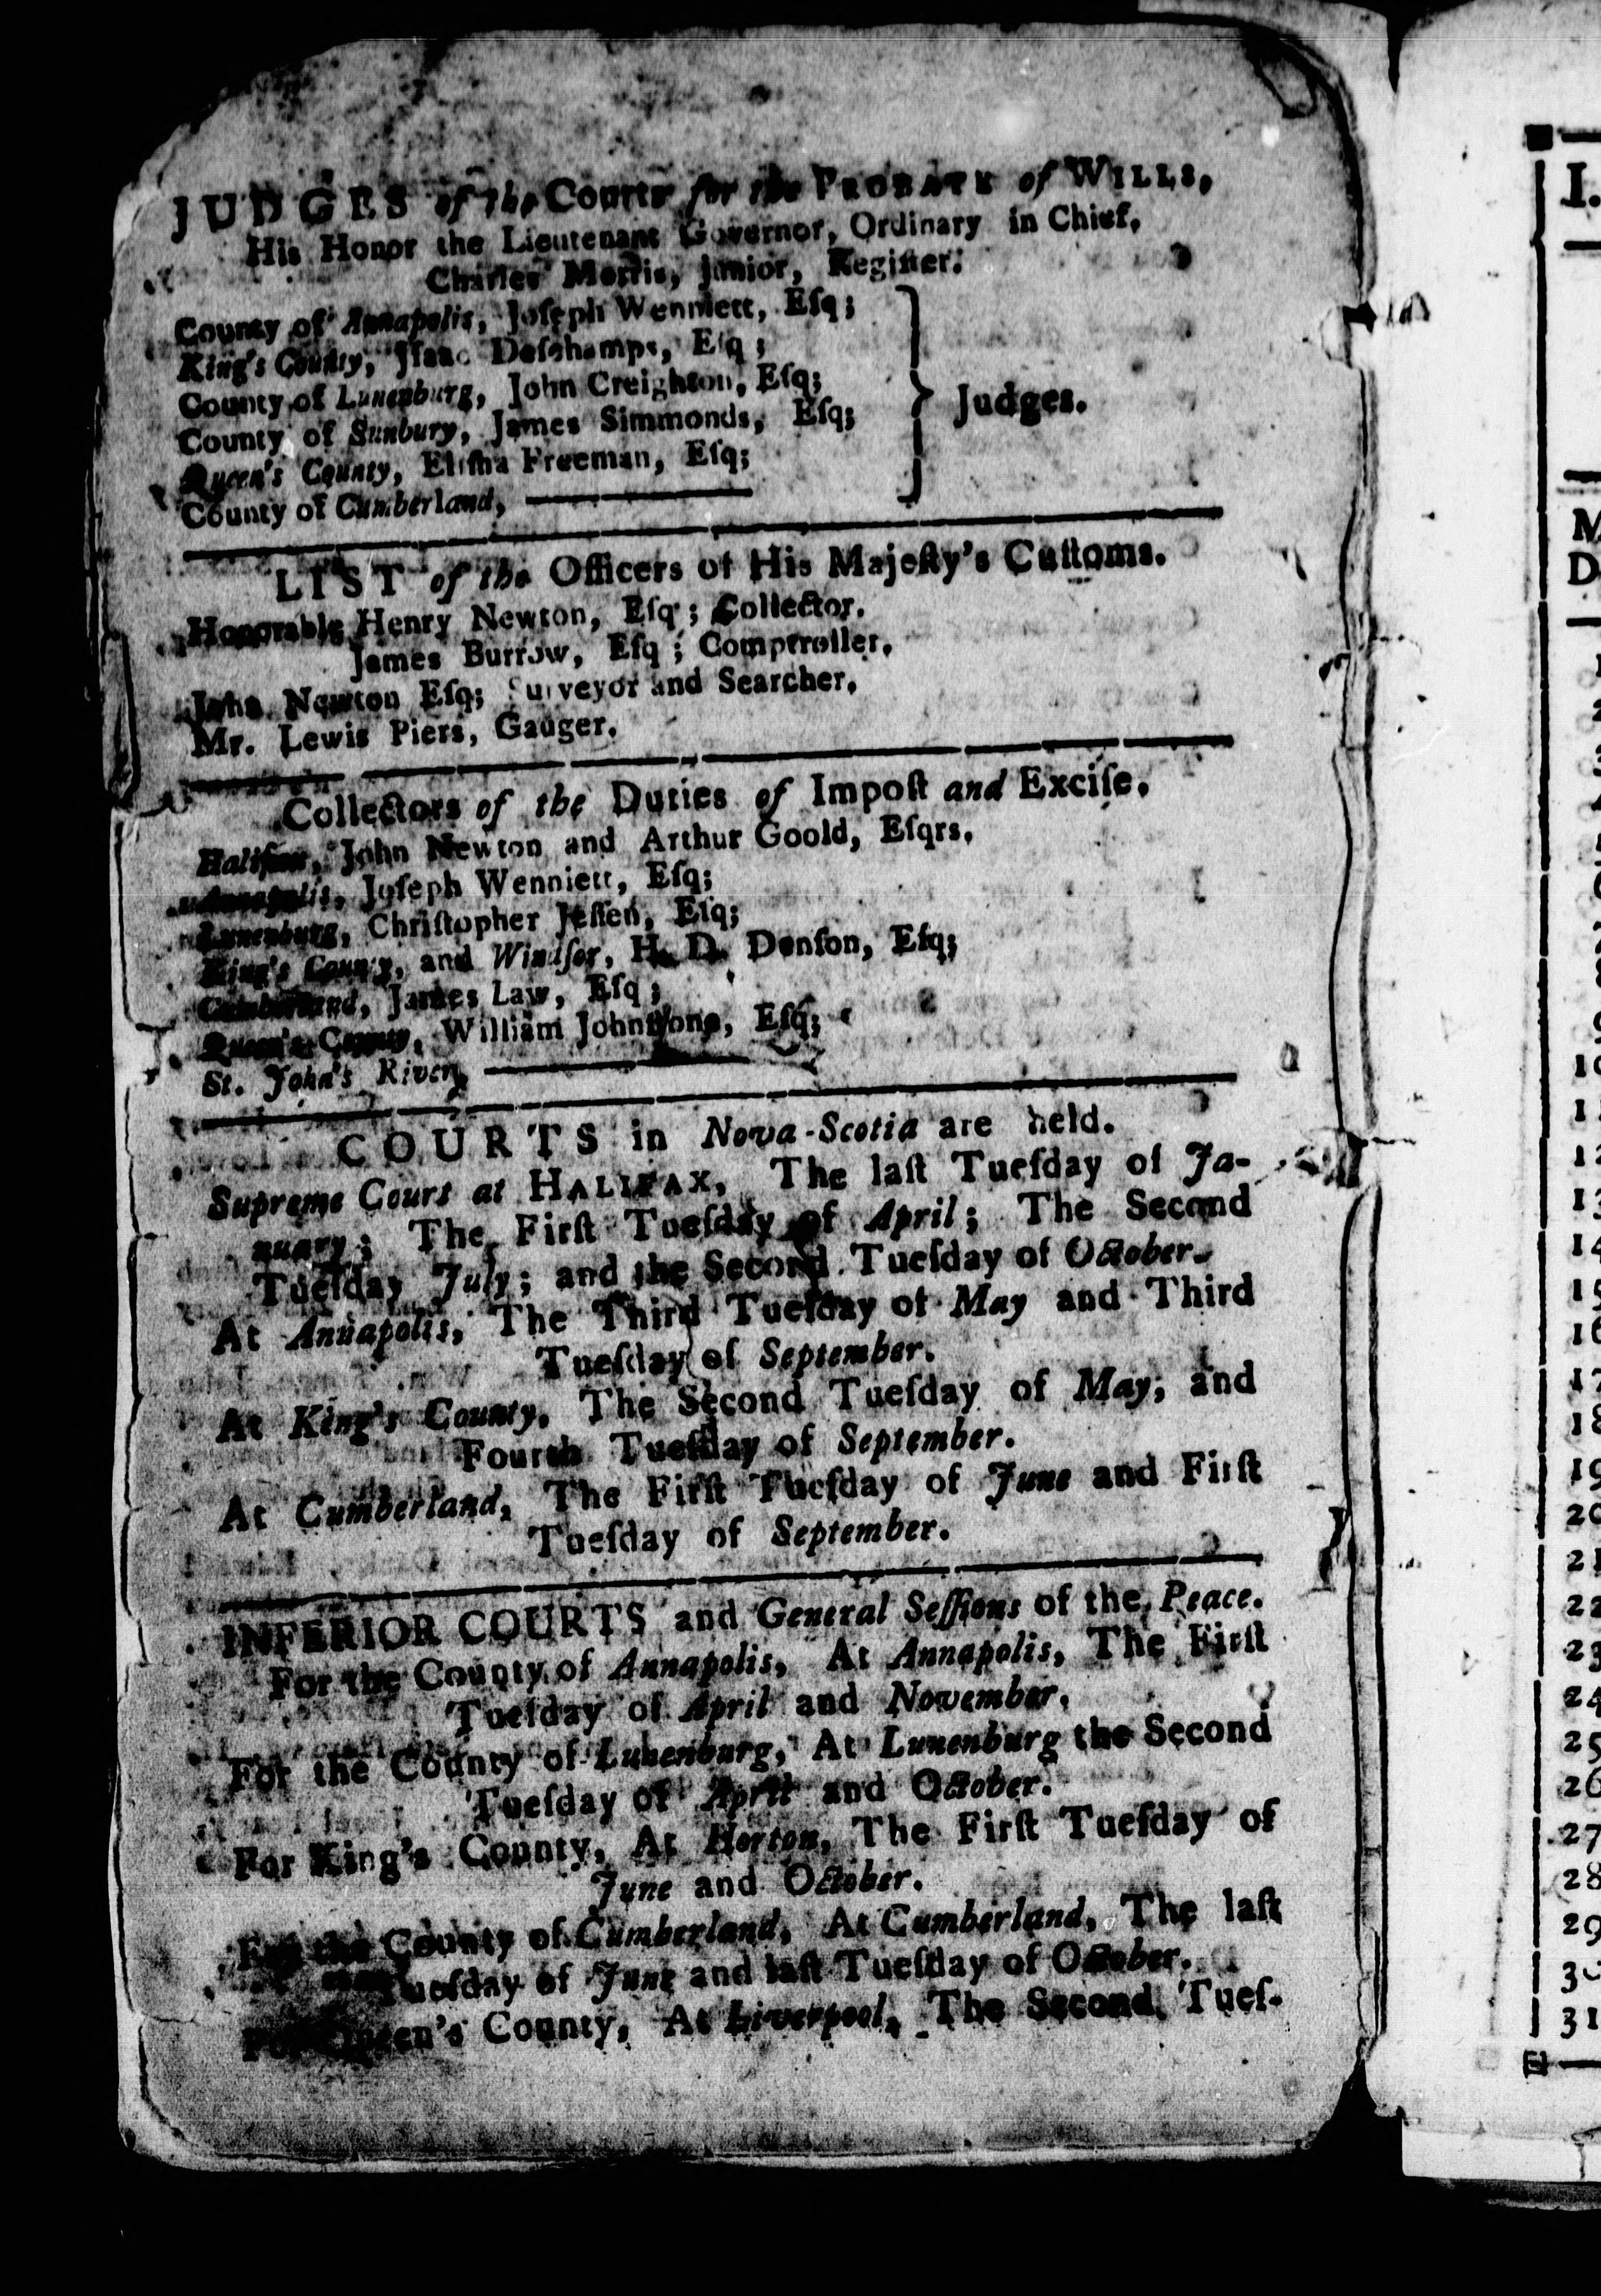 JUDGES of the Courts for the PROBATE of WILLS,
His Honor the Lieutenant Governor, Ordinary in Chief,
Charles Morris, junior, Regiſter.
County of Annapolis, Joſeph Wenniett, Eſq;
King's County, Iſaac Deſchamps, Eſq;
County of Lunenburg, John Creighton, Eſq;
County of Sunbury, James Simmonds, Eſq;
Queen's County, Eliſha Freeman, Eſq;
County of Cumberland,
Judges.
LIST of the Officers of His Majeſty's Cuſtoms.
Honorable Henry Newton, Eſq; Collector.
James Burrow, Eſq; Comptroller.
John Newton Eſq; Surveyor and Searcher,
Mr. Lewis Piers, Gauger.
Collectors of the Duties of Impoſt and Exciſe.
Halifax, John Newton and Arthur Goold, Eſqrs,
Annapolis, Joſeph Wenniett, Eſq;
Lunenburg, Chriſtopher Jeſſen, Eſq;
King's County, and Windſor, H. D. Denſon, Eſq;
Cumberland, James Law, Eſq;
Queen's County, William Johnſtone, Eſq;
St. John's River,
COURTS in Nova-Scotia are held.
Supreme Court at HALIFAX, The laſt Tueſday of Ja-
nuary; The Firſt Tueſday of April; The Second
Tueſday July; and the Second Tueſday of October.
At Annapolis, The Third Tueſday of May and Third
Tueſday of September.
At King's County, The Second Tueſday of May, and
Fourth Tueſday of September.
At Cumberland, The Firſt Tueſday of June and Firſt
Tueſday of September.
INFERIOR COURTS and General Seſſions of the Peace.
For the County of Annapolis, At Annapolis, The Firſt
Tueſday of April and November.
For the County of Lunenburg, At Lunenburg the Second
Tueſday of April and October.
For King's County, At Horton, The Firſt Tueſday of
June and October.
For the County of Cumberland, At Cumberland, The laſt
Tueſday of June and laſt Tueſday of October.
For Queen's County, At Liverpool, The Second Tueſ-
I.
M
D
10
11
12
13
14
15
16
17
18
19
20
21
22
23
24
25
26
27
28
29
30
31